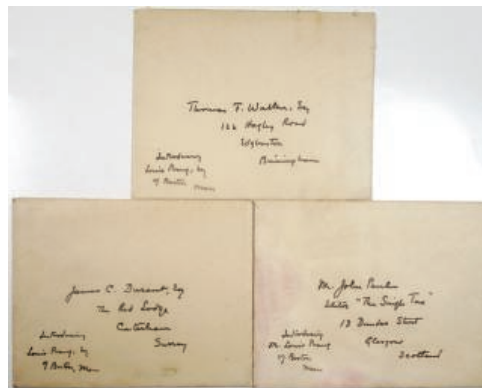 Thomas F. Walker, Esq
122 Hagley Road
Edgbaston
Birmingham
Introducing
Louis Prang, Esq
of Boston
Mass
James C. Durant, Esq
The Red Lodge
Caterham
Surrey
Introducing
Louis Prang, Esq
of Boston, Mass
Mr John Paul
Editor "The Single Tax"
13 Dundas Street
Glasgow
Scotland
Introducing
Mr Louis Prang
of Boston
Mass